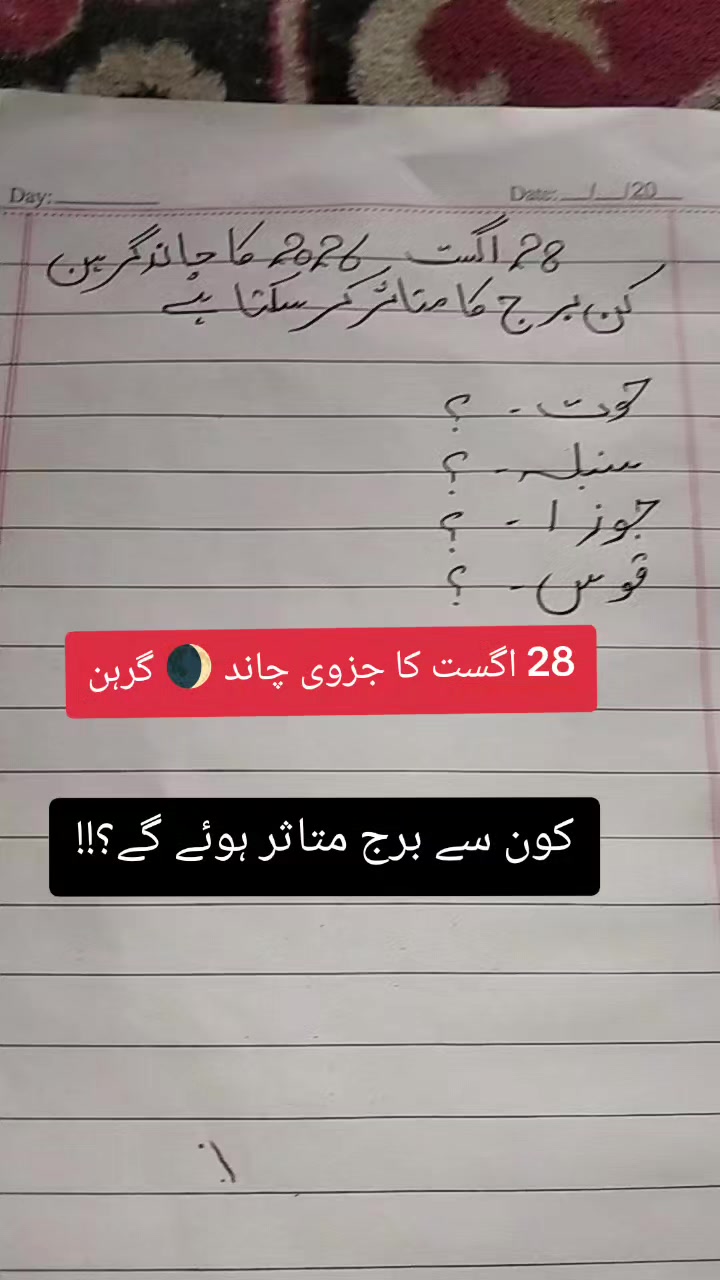 Day:________ Date:__/__/20__
28 اگست 2026 کا چاند گرہن
کن برج کا متاثر کر سکتا ہے
حوت - ؟
سنبلہ - ؟
جوزا - ؟
قوس - ؟
28 اگست کا جزوی چاند 🌒 گرہن
کون سے برج متاثر ہوئے گے؟!!